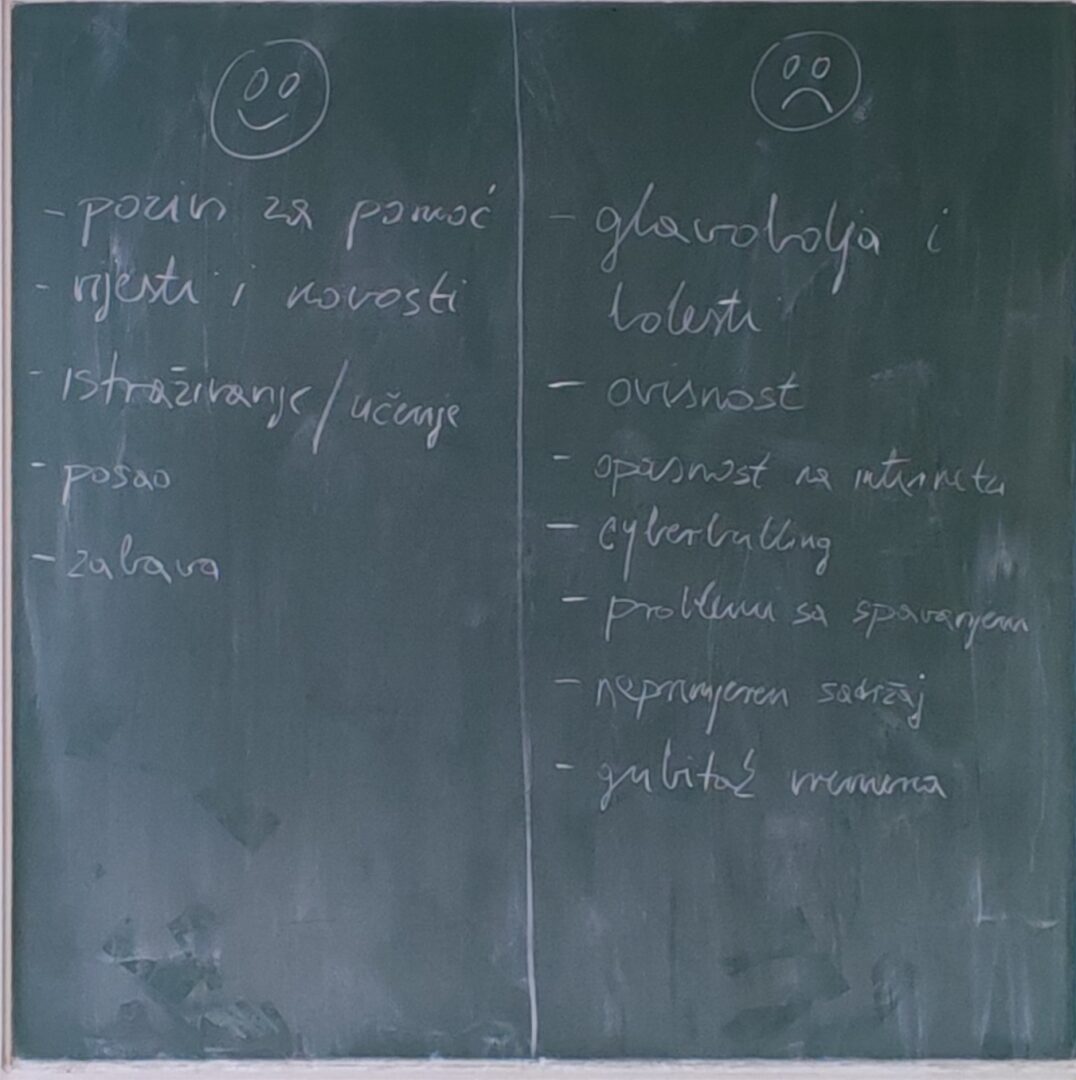 - poziv za pomoć
- vijesti i novosti
- istraživanje/učenje
- posao
- zabava
- glavobolja i
bolesti
- ovisnost
- opasnost na internetu
- cyberbulling
- problemi sa spavanjem
- neprimjeren sadržaj
- gubitak vremena